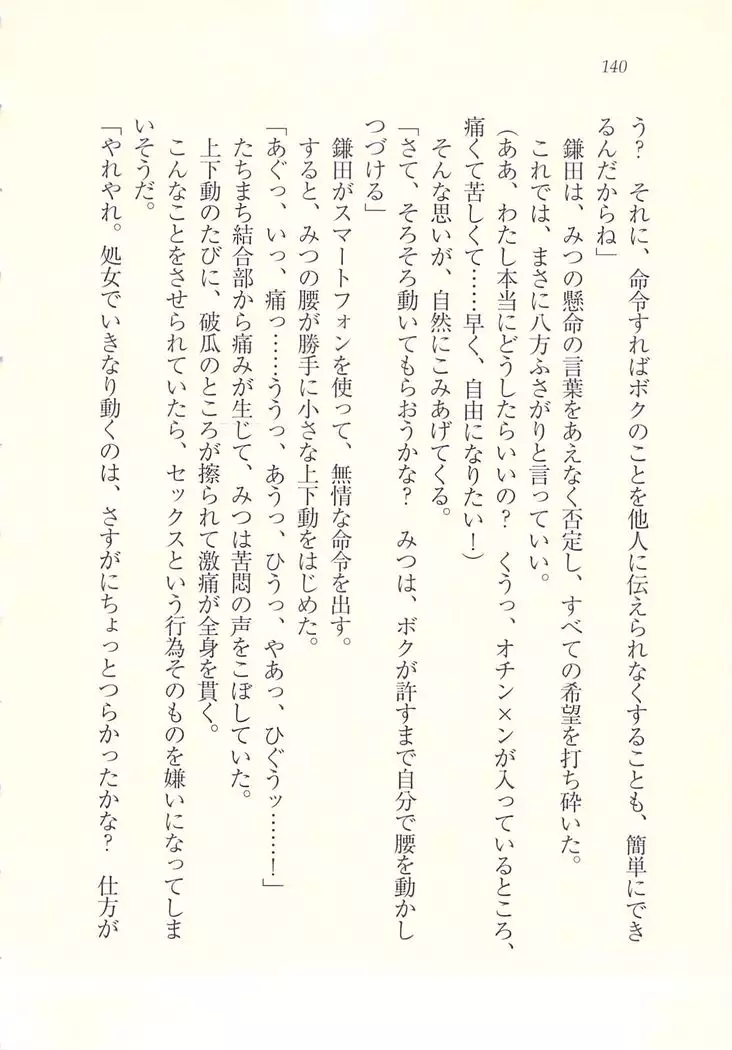 140
う？　それに、命令すればボクのことを他人に伝えられなくすることも、簡単にでき
るんだからね」
鎌田は、みつの懸命の言葉をあえなく否定し、すべての希望を打ち砕いた。
これでは、まさに八方ふさがりと言っていい。
（ああ、わたし本当にどうしたらいいの？　くうっ、オチン×ンが入っているところ、
痛くて苦しくて……早く、自由になりたい！）
そんな思いが、自然にこみあげてくる。
「さて、そろそろ動いてもらおうかな？　みつは、ボクが許すまで自分で腰を動かし
つづける」
鎌田がスマートフォンを使って、無情な命令を出す。
すると、みつの腰が勝手に小さな上下動をはじめた。
「あぐっ、いっ、痛っ……ううっ、あうっ、ひうっ、やあっ、ひぐうッ……！」
たちまち結合部から痛みが生じて、みつは苦悶の声をこぼしていた。
上下動のたびに、破瓜のところが擦られて激痛が全身を貫く。
こんなことをさせられていたら、セックスという行為そのものを嫌いになってしま
いそうだ。
「やれやれ。処女でいきなり動くのは、さすがにちょっとつらかったかな？　仕方が